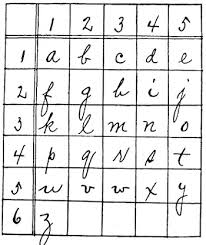 1 2 3 4 5
1 a b c d e
2 f g h i j
3 k l m n o
4 p q r s t
5 u v w x y
6 z